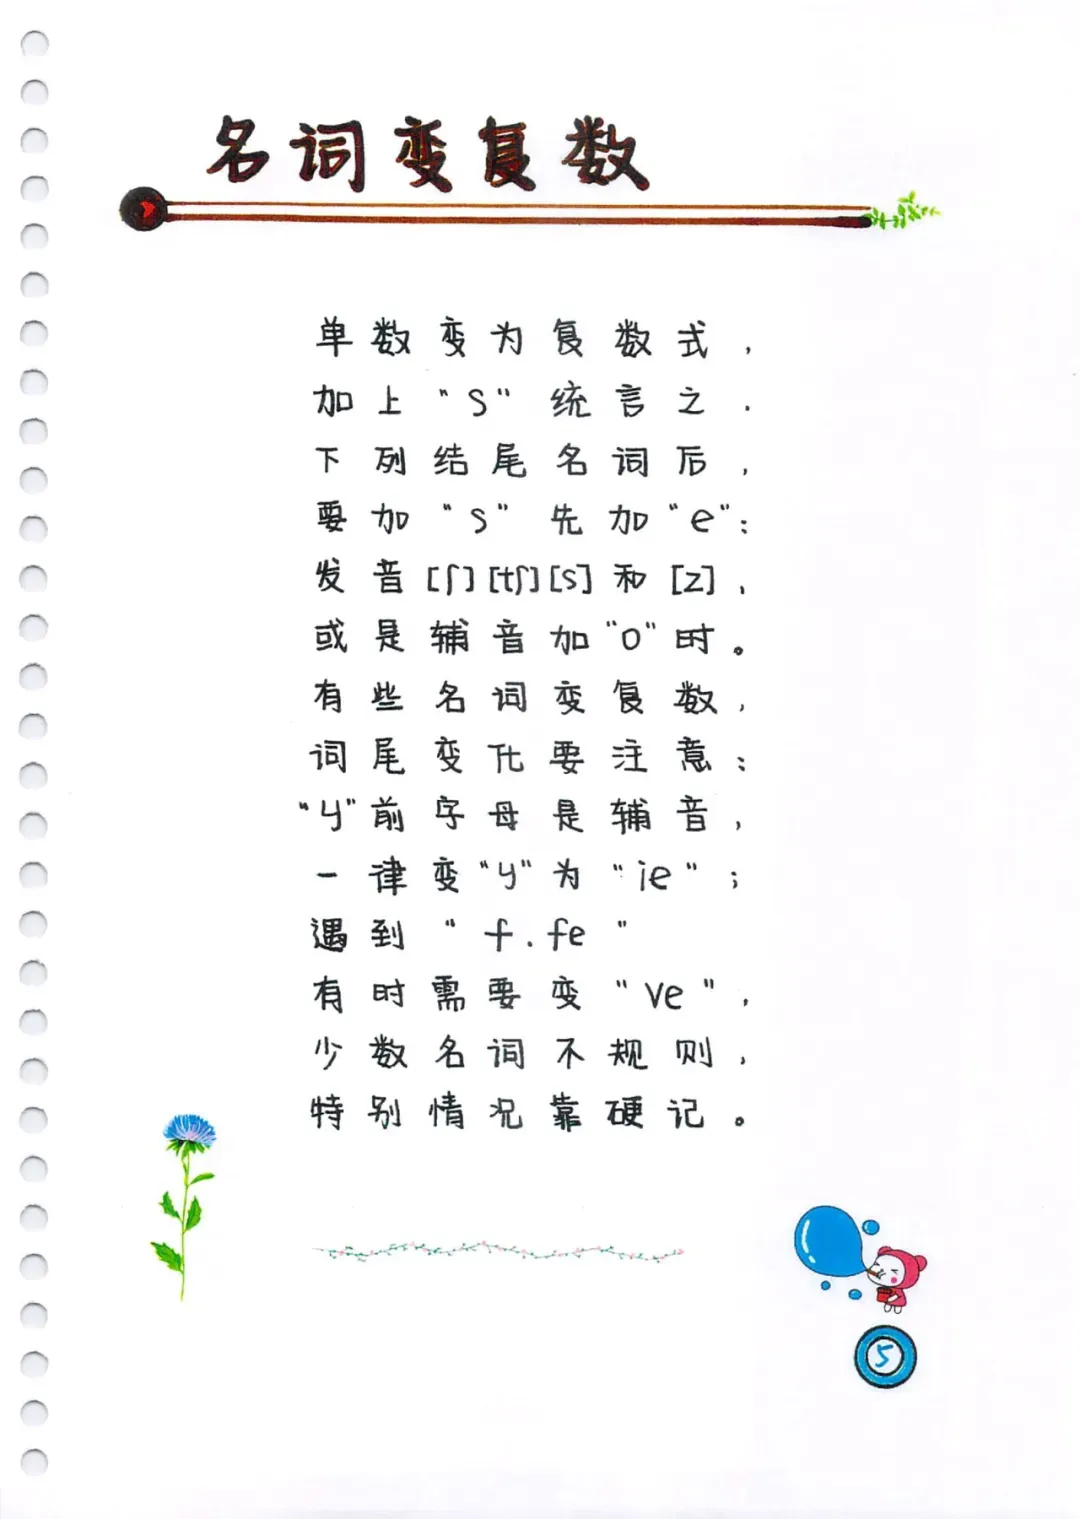 名词变复数
单数变为复数式，
加上“S”统言之．
下列结尾名词后，
要加“s”先加“e”：
发音[ʃ][tʃ][s]和[z]，
或是辅音加“o”时。
有些名词变复数，
词尾变化要注意：
“y”前字母是辅音，
一律变“y”为“ie”；
遇到“f.fe”
有时需要变“ve”，
少数名词不规则，
特别情况靠硬记。
5